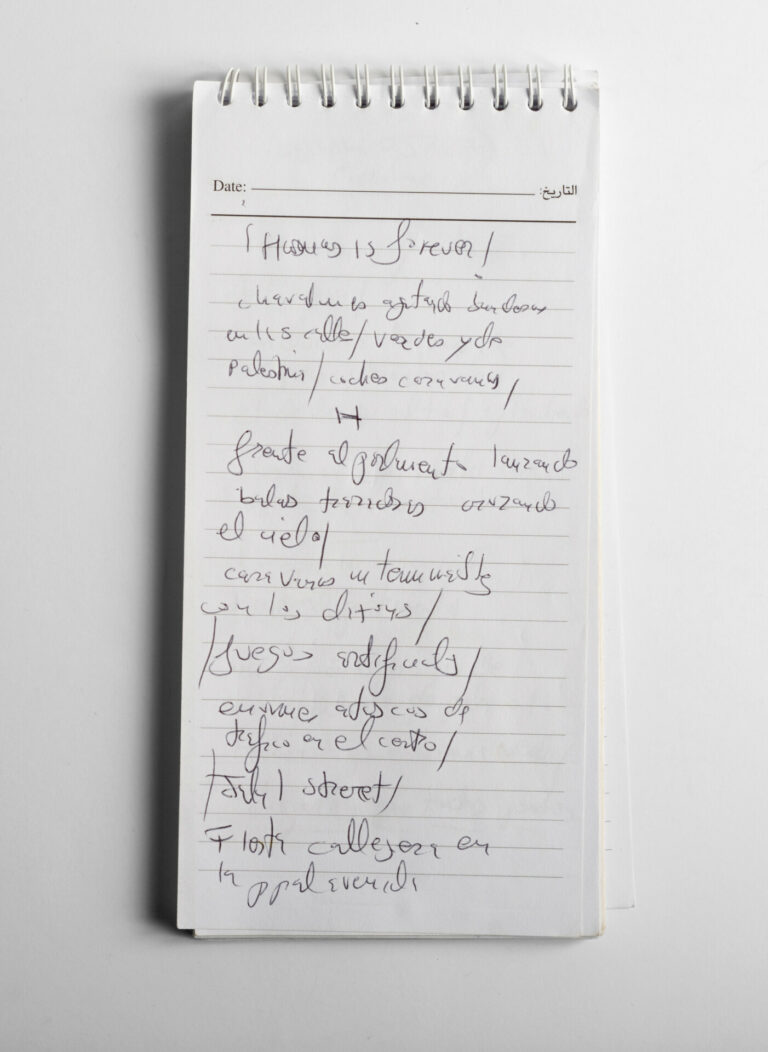 Date: التاريخ:
/Hamas is forever/
chavalines agitando banderas
en las calle/ verdes y de
palestina/ coches caravanas/
H
frente al parlamento lanzando
balas trazadoras cruzando
el cielo/
caravanas interminable
con los
/fuegos artificiales/
enormes atascos de
trafico en el centro/
street/
Fiesta callejera en
la ppal avenida